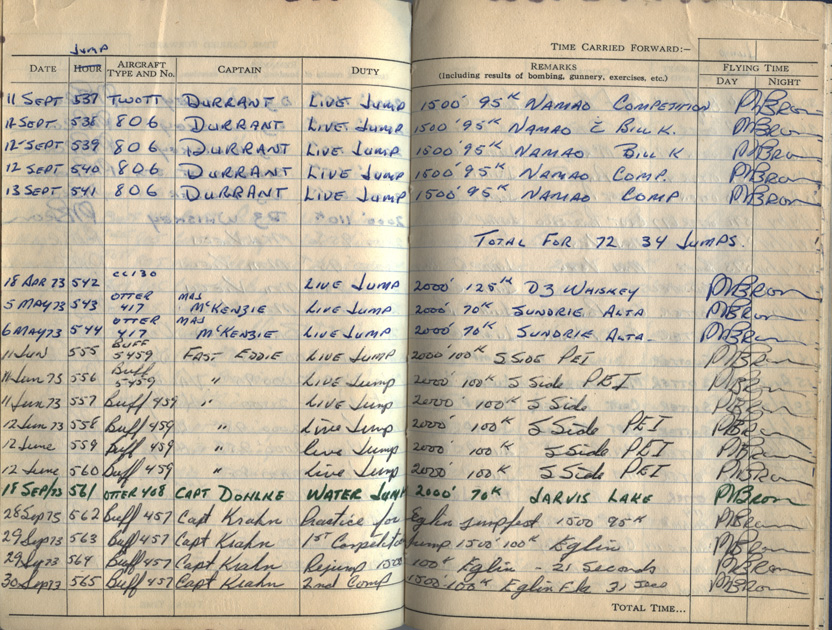 TIME CARRIED FORWARD:-
JUMP
DATE HOUR AIRCRAFT TYPE AND No. CAPTAIN DUTY REMARKS (Including results of bombing, gunnery, exercises, etc.) FLYING TIME DAY NIGHT
11 SEPT 537 TWOTT DURRANT LIVE JUMP 1500' 95K NAMAO COMPETITION
12 SEPT 538 806 DURRANT LIVE JUMP 1500' 95K NAMAO C BILL K.
12 SEPT 539 806 DURRANT LIVE JUMP 1500' 95K NAMAO BILL K
12 SEPT 540 806 DURRANT LIVE JUMP 1500' 95K NAMAO COMP.
13 SEPT 541 806 DURRANT LIVE JUMP 1500' 95K NAMAO COMP
TOTAL FOR 72 34 JUMPS.
18 APR 73 542 CC130 LIVE JUMP 2000' 125K DZ WHISKEY
5 MAY 73 543 OTTER 417 MAJ McKENZIE LIVE JUMP 2000' 70K SUNDRIE ALTA
6 MAY 73 544 OTTER 417 MAJ McKENZIE LIVE JUMP 2000' 70K SUNDRIE ALTA.
11 JUN 555 BUFF 5459 FAST EDDIE LIVE JUMP 2000' 100K S SIDE PEI
11 Jun 73 556 Buff 5459 " LIVE Jump 2000' 100K S Side PEI
11 Jun 73 557 Buff 459 " LIVE Jump 2000' 100K S Side
12 June 73 558 Buff 459 " Live Jump 2000' 100K S Side PEI
12 June 559 Buff 459 " Live Jump 2000' 100K S Side PEI
12 June 560 Buff 459 " Live Jump 2000' 100K S Side PEI
18 SEP/73 561 OTTER 408 CAPT DOHLKE WATER JUMP 2000' 70K JARVIS LAKE
28 Sep 73 562 Buff 457 Capt Krahn Practice for Eglin Jumpfest 1500 95K
29 Sep 73 563 Buff 457 Capt Krahn 1ST Competition Jump 1500' 100K Eglin
29 Sep 73 564 Buff 457 Capt Krahn Rejump 1500 100K Eglin - 21 Seconds
30 Sep 73 565 Buff 457 Capt Krahn 2nd Comp 1500' 100K Eglin Fla 31 Secs
TOTAL TIME...